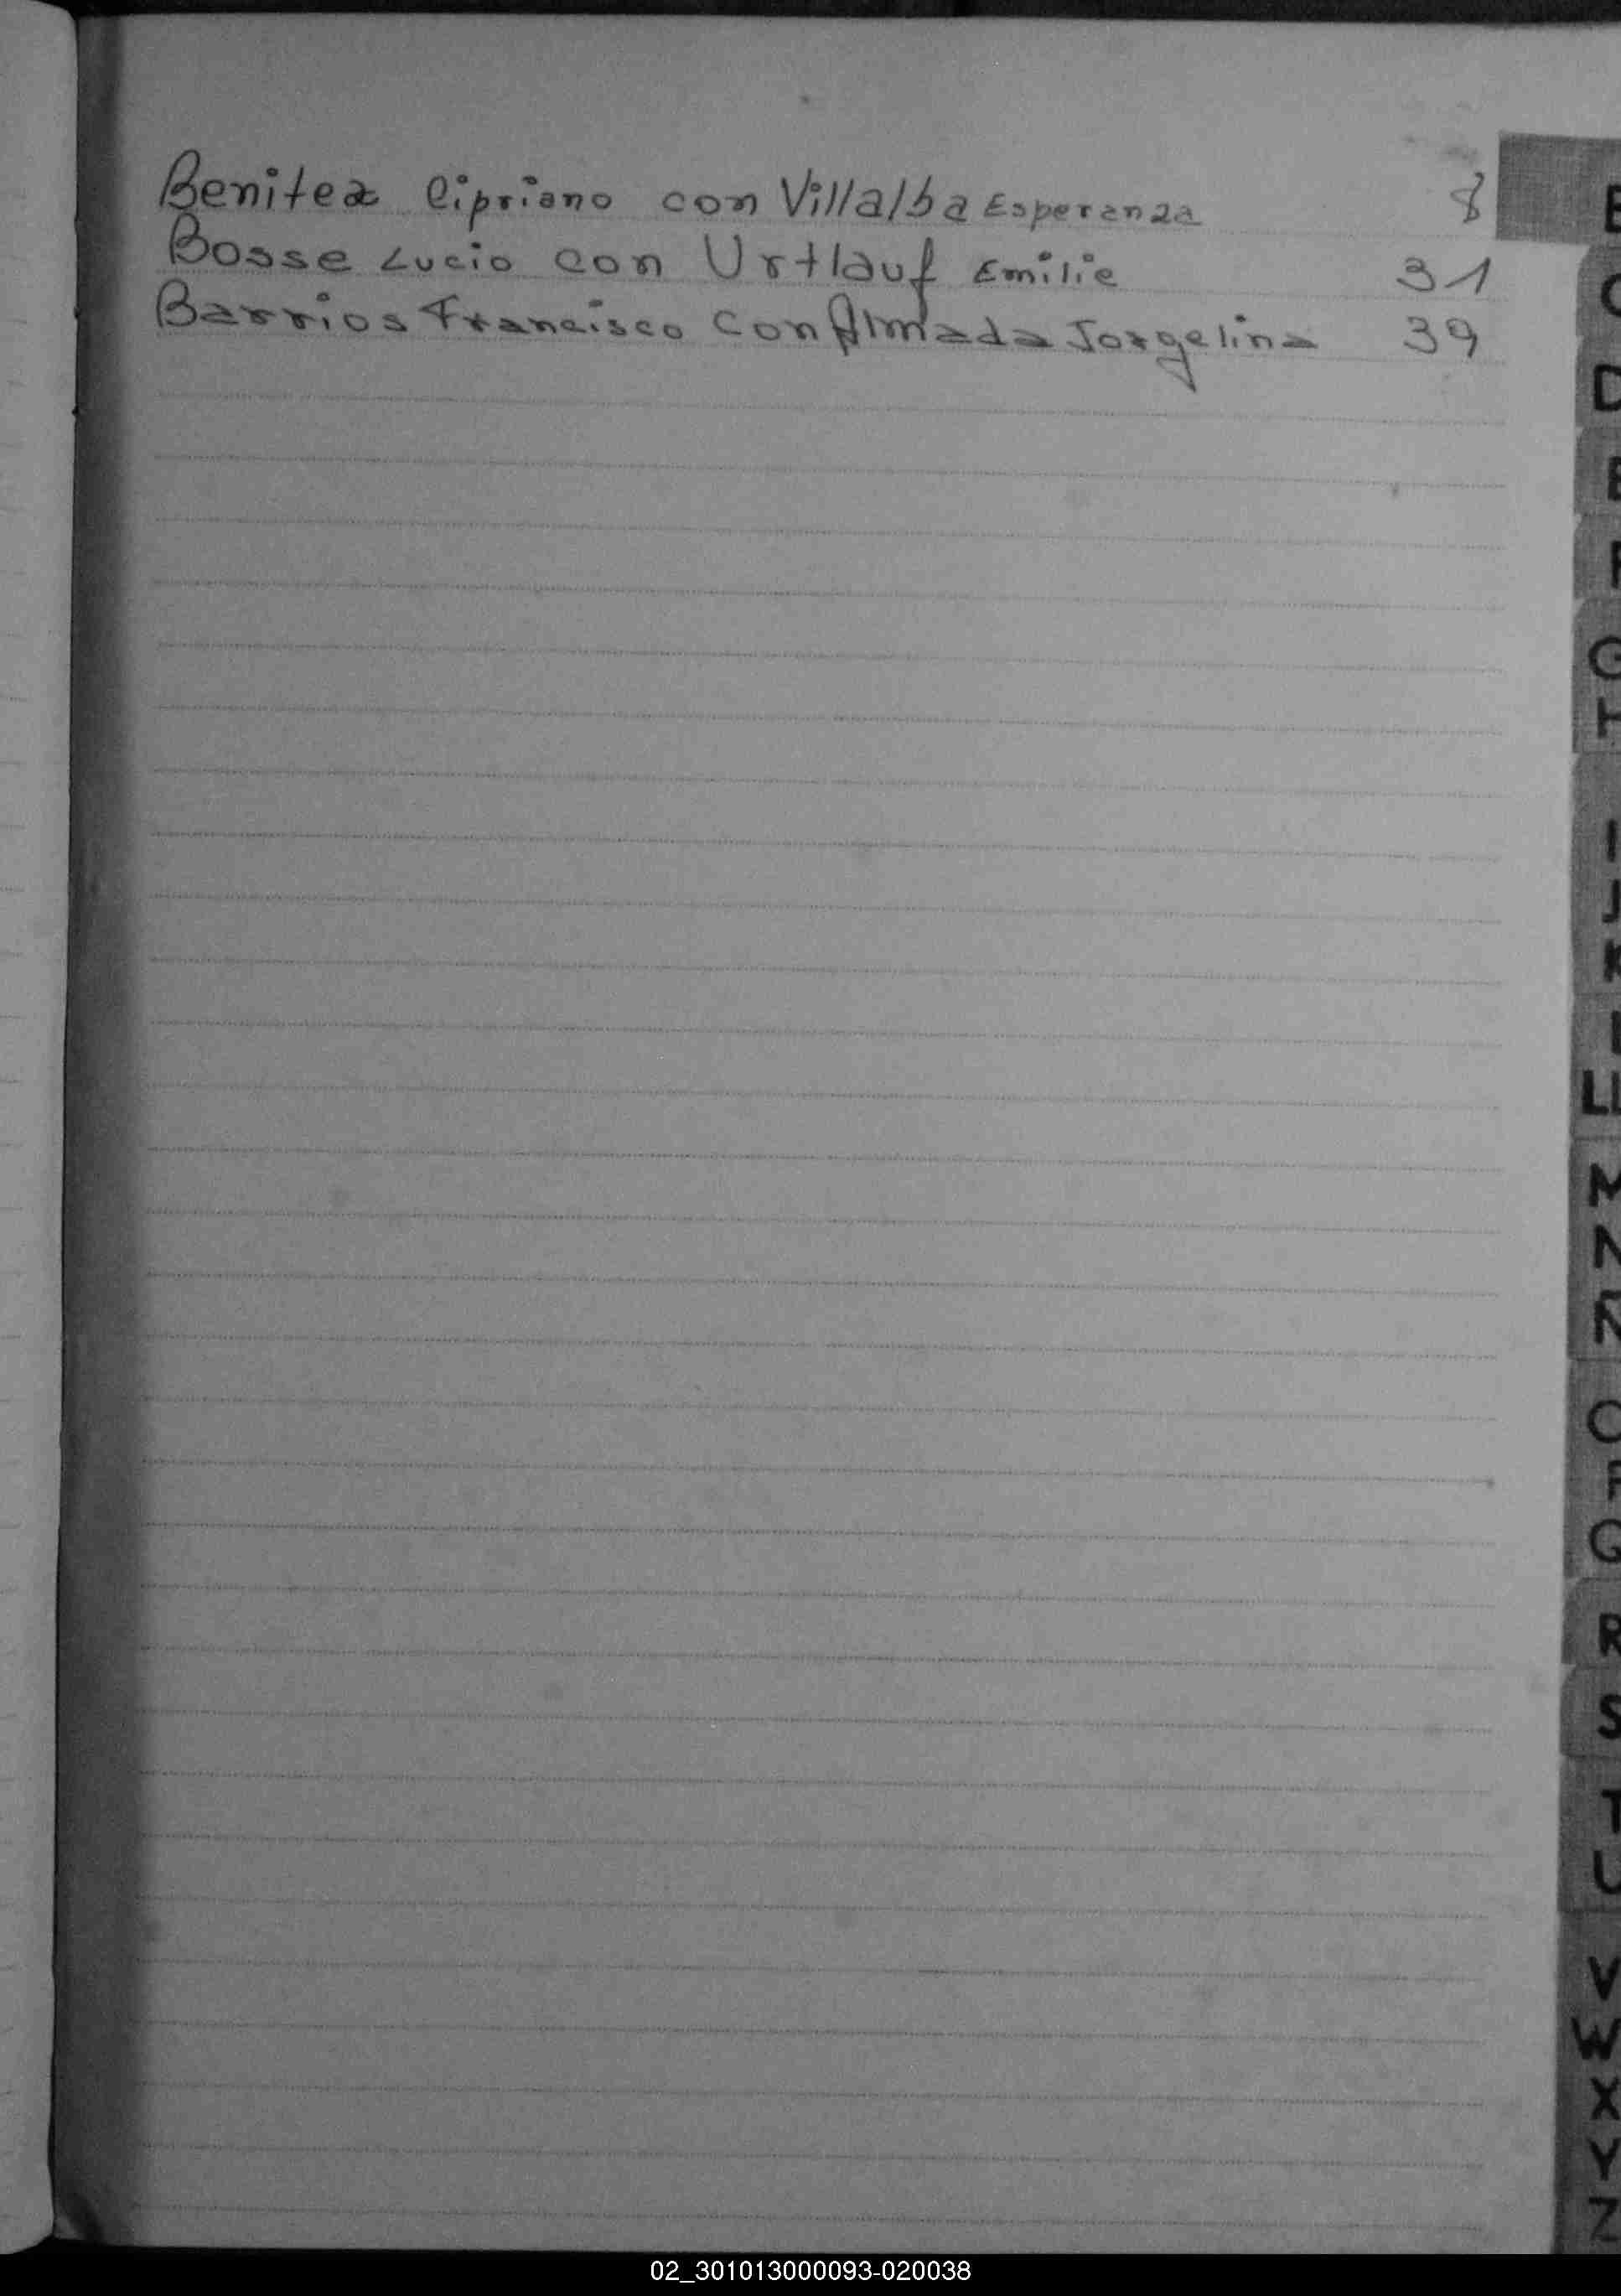 Benitez Cipriano con Villalba Esperanza 8
Bosse Lucio con Urtlauf Emilie 31
Barrios Francisco con Almada Jorgelina 39
C
D
G
H
I
J
K
L
LL
M
N
Ñ
O
P
Q
R
S
T
U
V
W
X
Y
Z
02_301013000093-020038